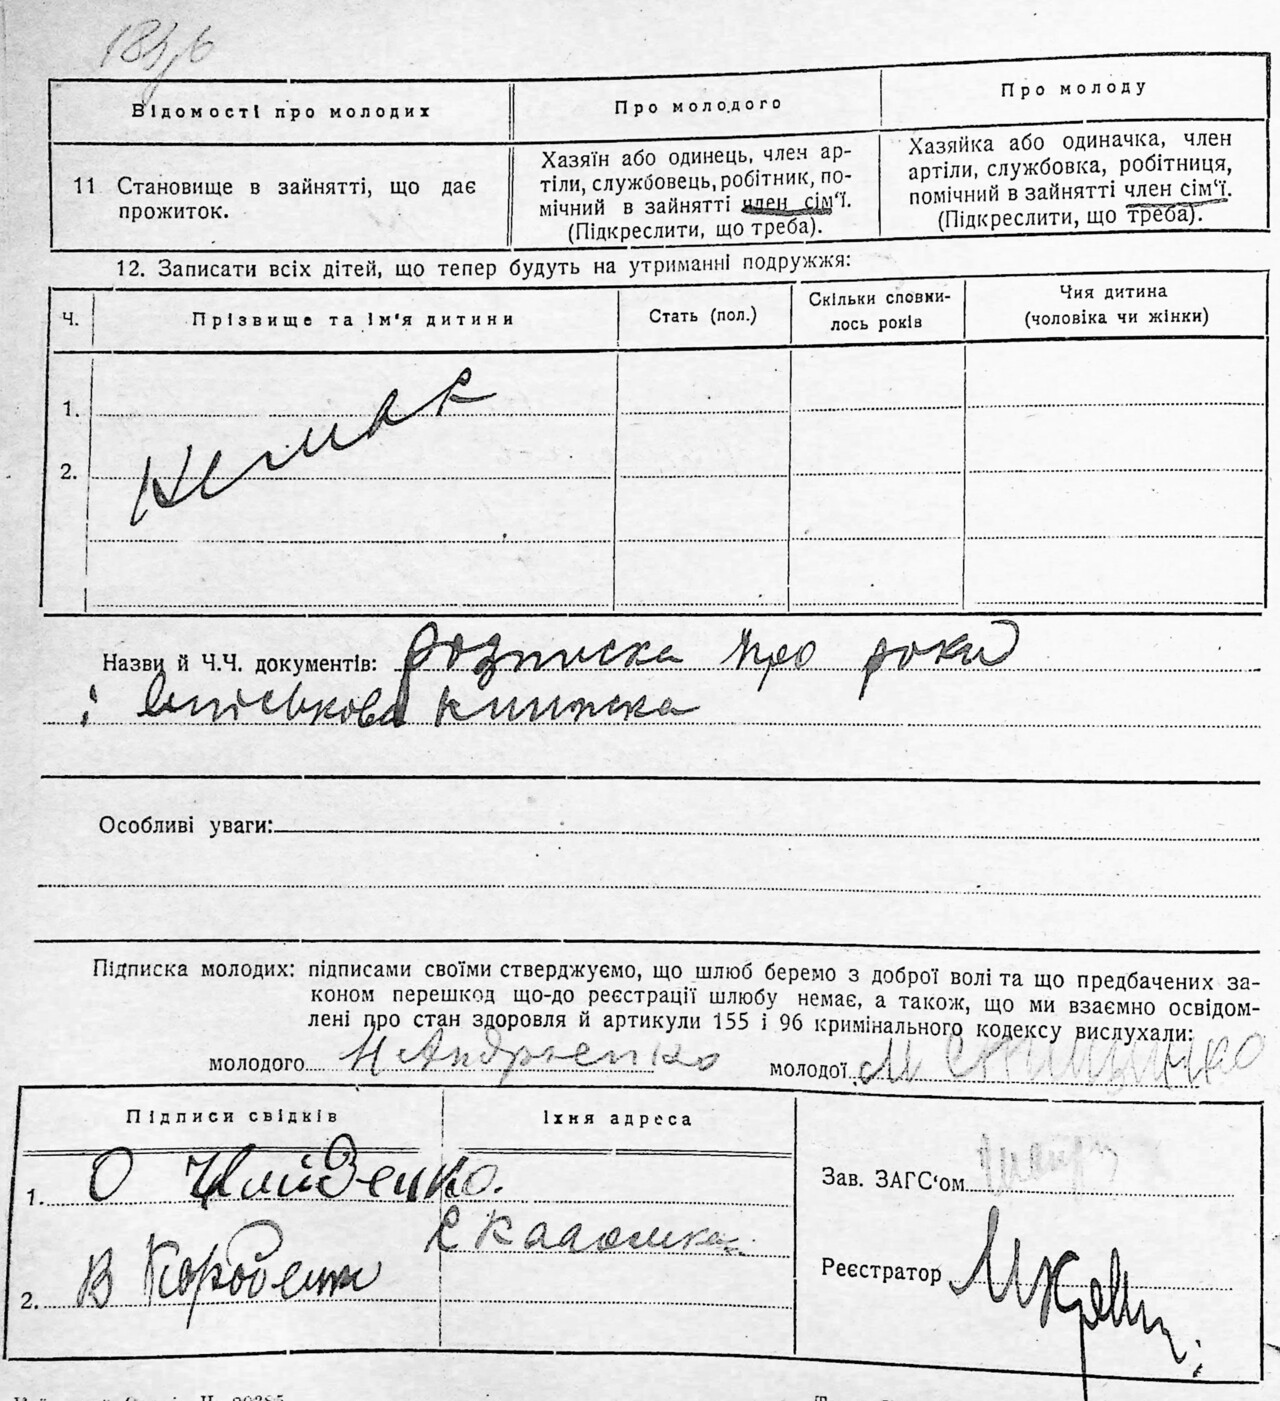 Відомості про молодих
Про молодого
Про молоду
11 Становище в зайнятті, що дає
прожиток.
Хазяїн або одинець, член ар-
тілі, службовець, робітник, по-
мічний в зайнятті член сім‘ї.
(Підкреслити, що треба).
Хазяйка або одиначка, член
артілі, службовка, робітниця,
помічний в зайнятті член сім‘ї.
(Підкреслити, що треба).
12. Записати всіх дітей, що тепер будуть на утриманні подружжя:
Ч.
Прізвище та ім'я дитини
Стать (пол.)
Скільки сповни-
лось років
Чия дитина
(чоловіка чи жінки)
1.
2.
Немає
Назви й Ч.Ч. документів: розписка про роки
і військова книжка
Особливі уваги:
Підписка молодих: підписами своїми стверджуємо, що шлюб беремо з доброї волі та що предбачених за-
коном перешкод що-до реєстрації шлюбу немає, а також, що ми взаємно освідом-
лені про стан здоровля й артикули 155 і 96 кримінального кодексу вислухали:
молодого Н Андрієнко молодої М
Підписи свідків
Їхня адреса
1. О
2. В
Зав. ЗАГС‘ом
Реєстратор